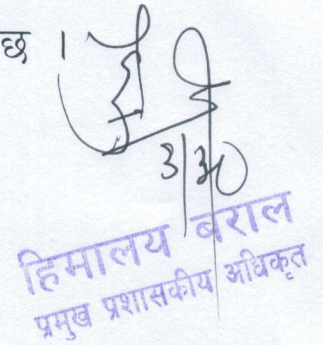 छ ।
हिमालय बराल
प्रमुख प्रशासकीय अधिकृत